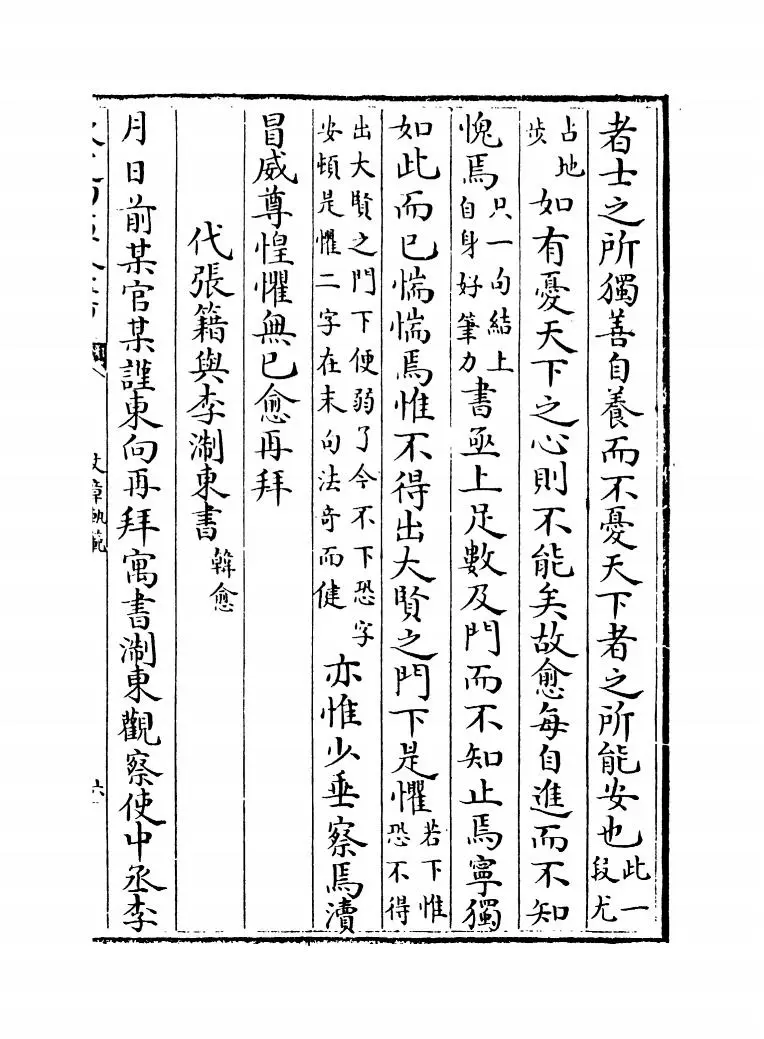 者士之所獨善自養而不憂天下者之所能安也此一段尤
占地步如有憂天下之心則不能矣故愈每自進而不知
愧焉只一句結上自身好筆力書亟上足數及門而不知止焉寧獨
如此而已惴惴焉惟不得出大賢之門下是懼若下惟恐不得
出大賢之門下便弱了今不下恐字安頓是懼二字在末句法竒而健亦惟少垂察焉瀆
冒威尊惶懼無已愈再拜
代張籍與李淛東書韓愈
月日前某官某謹東向再拜寓書淛東觀察使中丞李
文章軌範
六